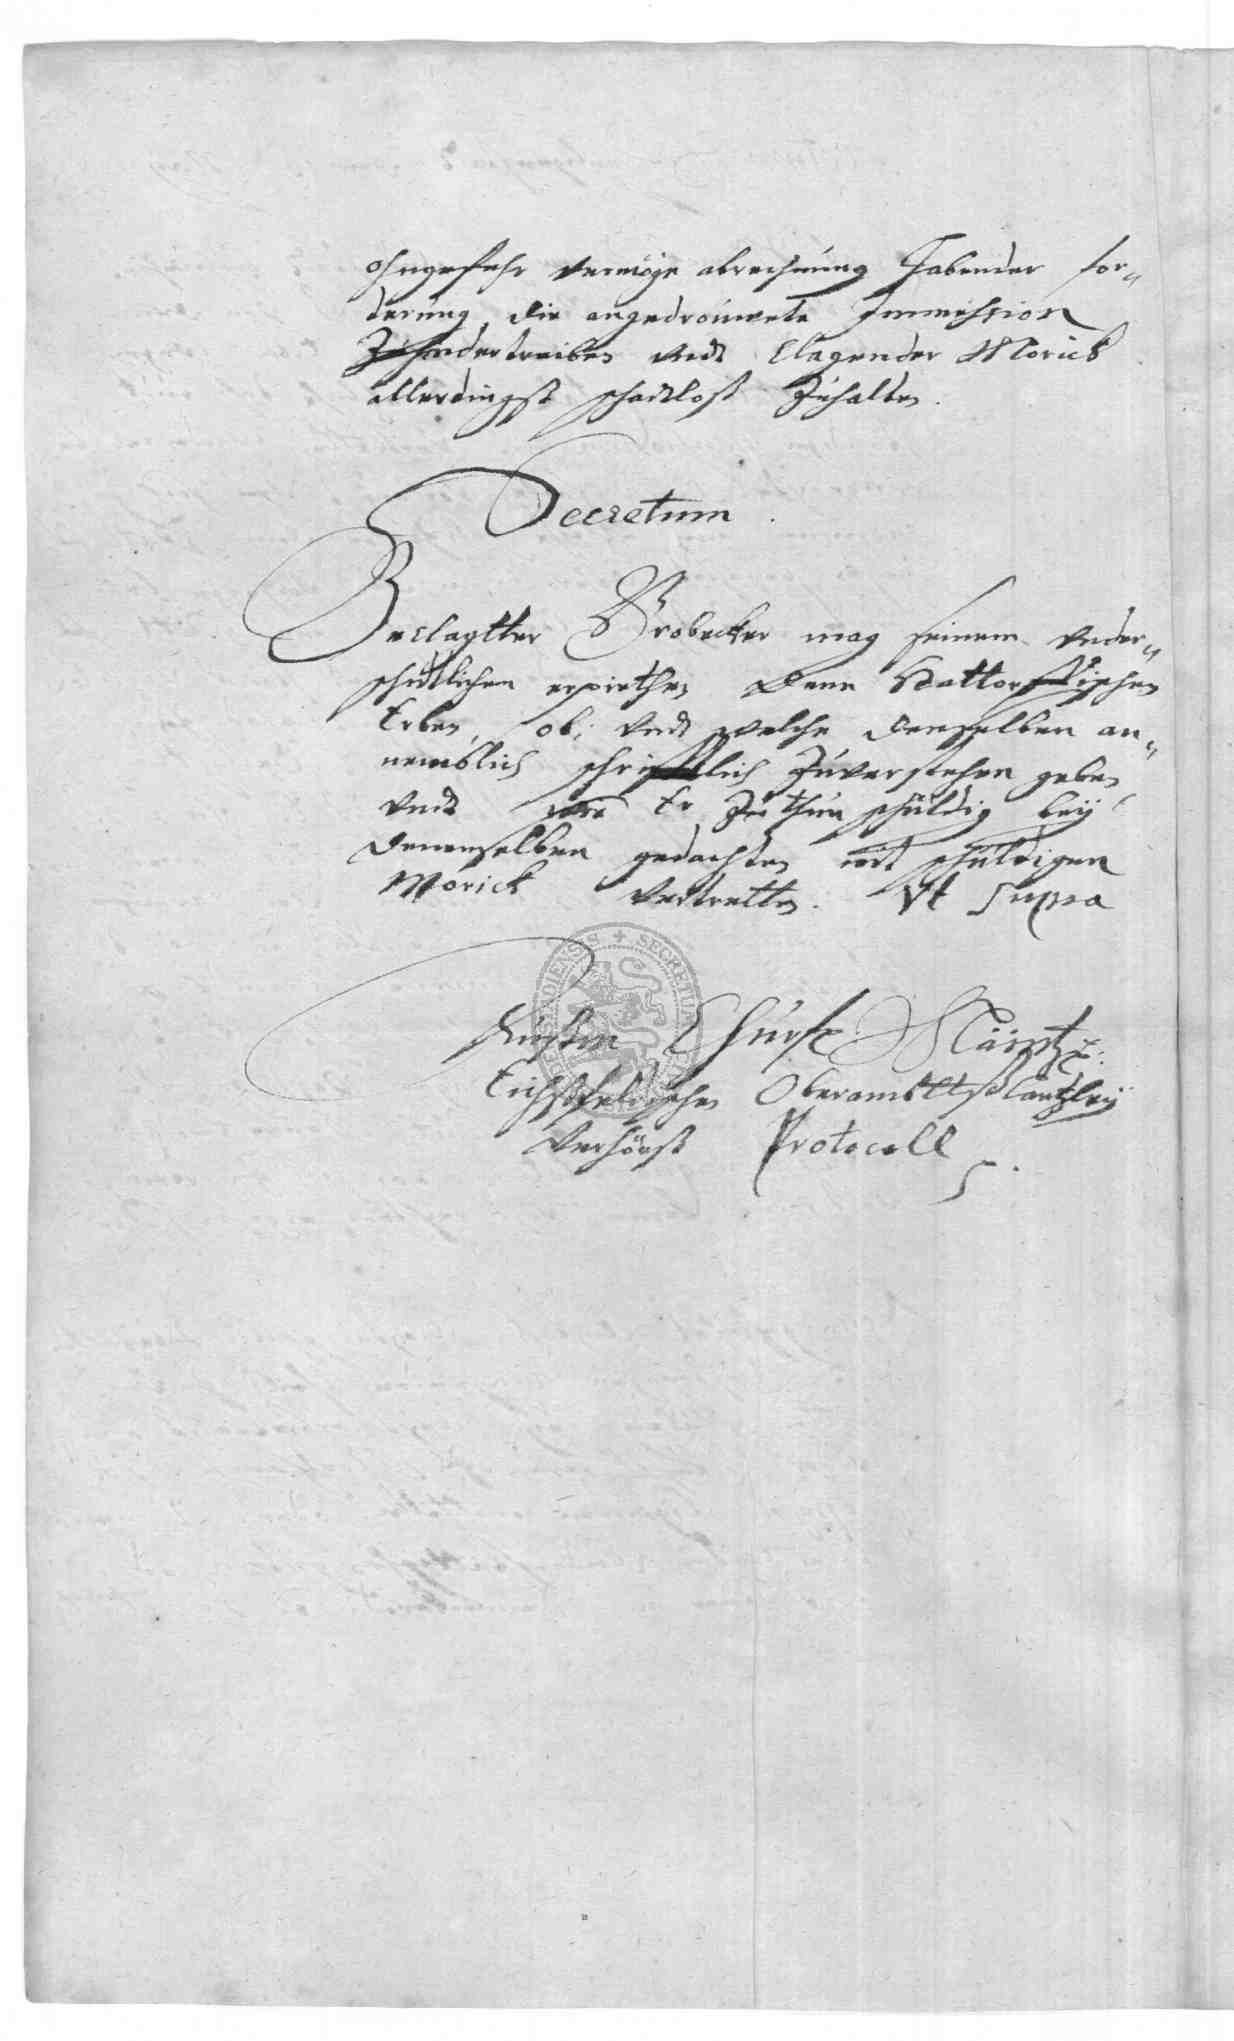 ohngefehr vermöge abrechnung habender for„
derung, die angedrouwete Immission
Zuhindertreiben undt Clagender Morick
allerdingst schadtloß Zuhalten.
Decretum.
Beclagtter Brobecker mag seinem under„
schidtlichen erpiethen denn
Erben, ob, undt welche denselben an„
nemblich schrifftlich Zuverstehen geben
undt was Er Zu thun schuldig bey
denenselben gedachten mit schuldigen
Morick vertretten. Vt supra
Churf. Maintz:
Eichßfeldischen Oberambttß Cantzley
Verhörß Protocoll
SECRETUM